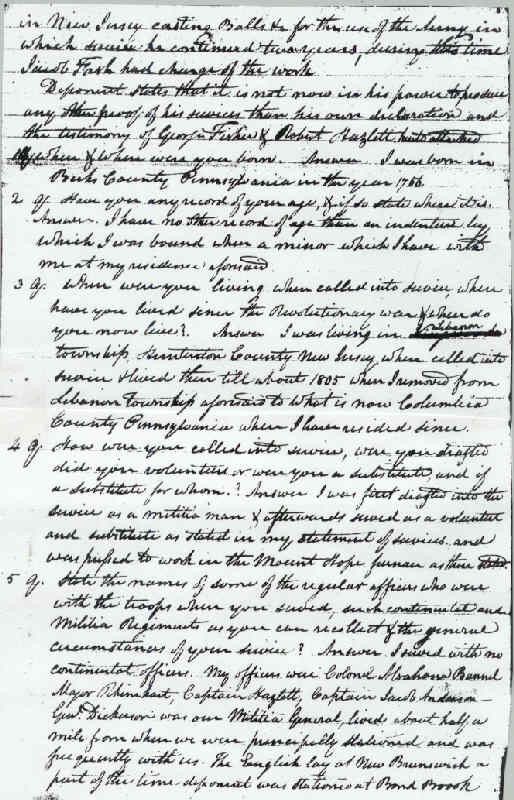 in New Jersey casting Balls &c for the use of the Army in
which service he continued two years, during this time
Jacob Fash had charge of the work.
Deponent states that it is not now in his power to produce
any other proof of his services than his own declaration and
the testimony of George Fisher & Robert Hazlett hereto attached
When & Where were you born. Answer I was born in
Berks County Pennsylvania in the year 1756
2 Q. Have you any record of your age, & if so state where it is.
Answer. I have no other record of age than an indenture by
which I was bound when a minor which I have with
me at my residence aforesaid
3 Q. Where were you living when called into service, where
have you lived since the Revolutionary war & where do
you now live? Answer I was living in Lebanon
township, Hunterdon County New Jersey when called into
service & lived there till about 1805 when I removed from
Lebanon Township aforesaid to what is now Columbia
County Pennsylvania where I have resided since.
4 Q. How were you called into service, were you drafted
did you volunteer or were you a substitute and if
a substitute for whom? Answer I was first drafted into the
service as a militia man & afterwards served as a volunteer
and substitute as stated in my statement of services and
was pressed to work in the Mount Hope furnace as there
5 Q. State the names of some of the regular officers who were
with the troops where you served, such continental and
Militia Regiments as you can recollect & the general
circumstances of your service? Answer I served with no
continental officers. My officers were Colonel Bonnel
Major Rhineheart, Captain Hazlett, Captain Jacob Anderson
Genl. Dickerson was our Militia General, lived about half a
mile from where we were principally stationed and was
frequently with us. The English lay at New Brunswick a
part of the time deponent was stationed at Bond Brook